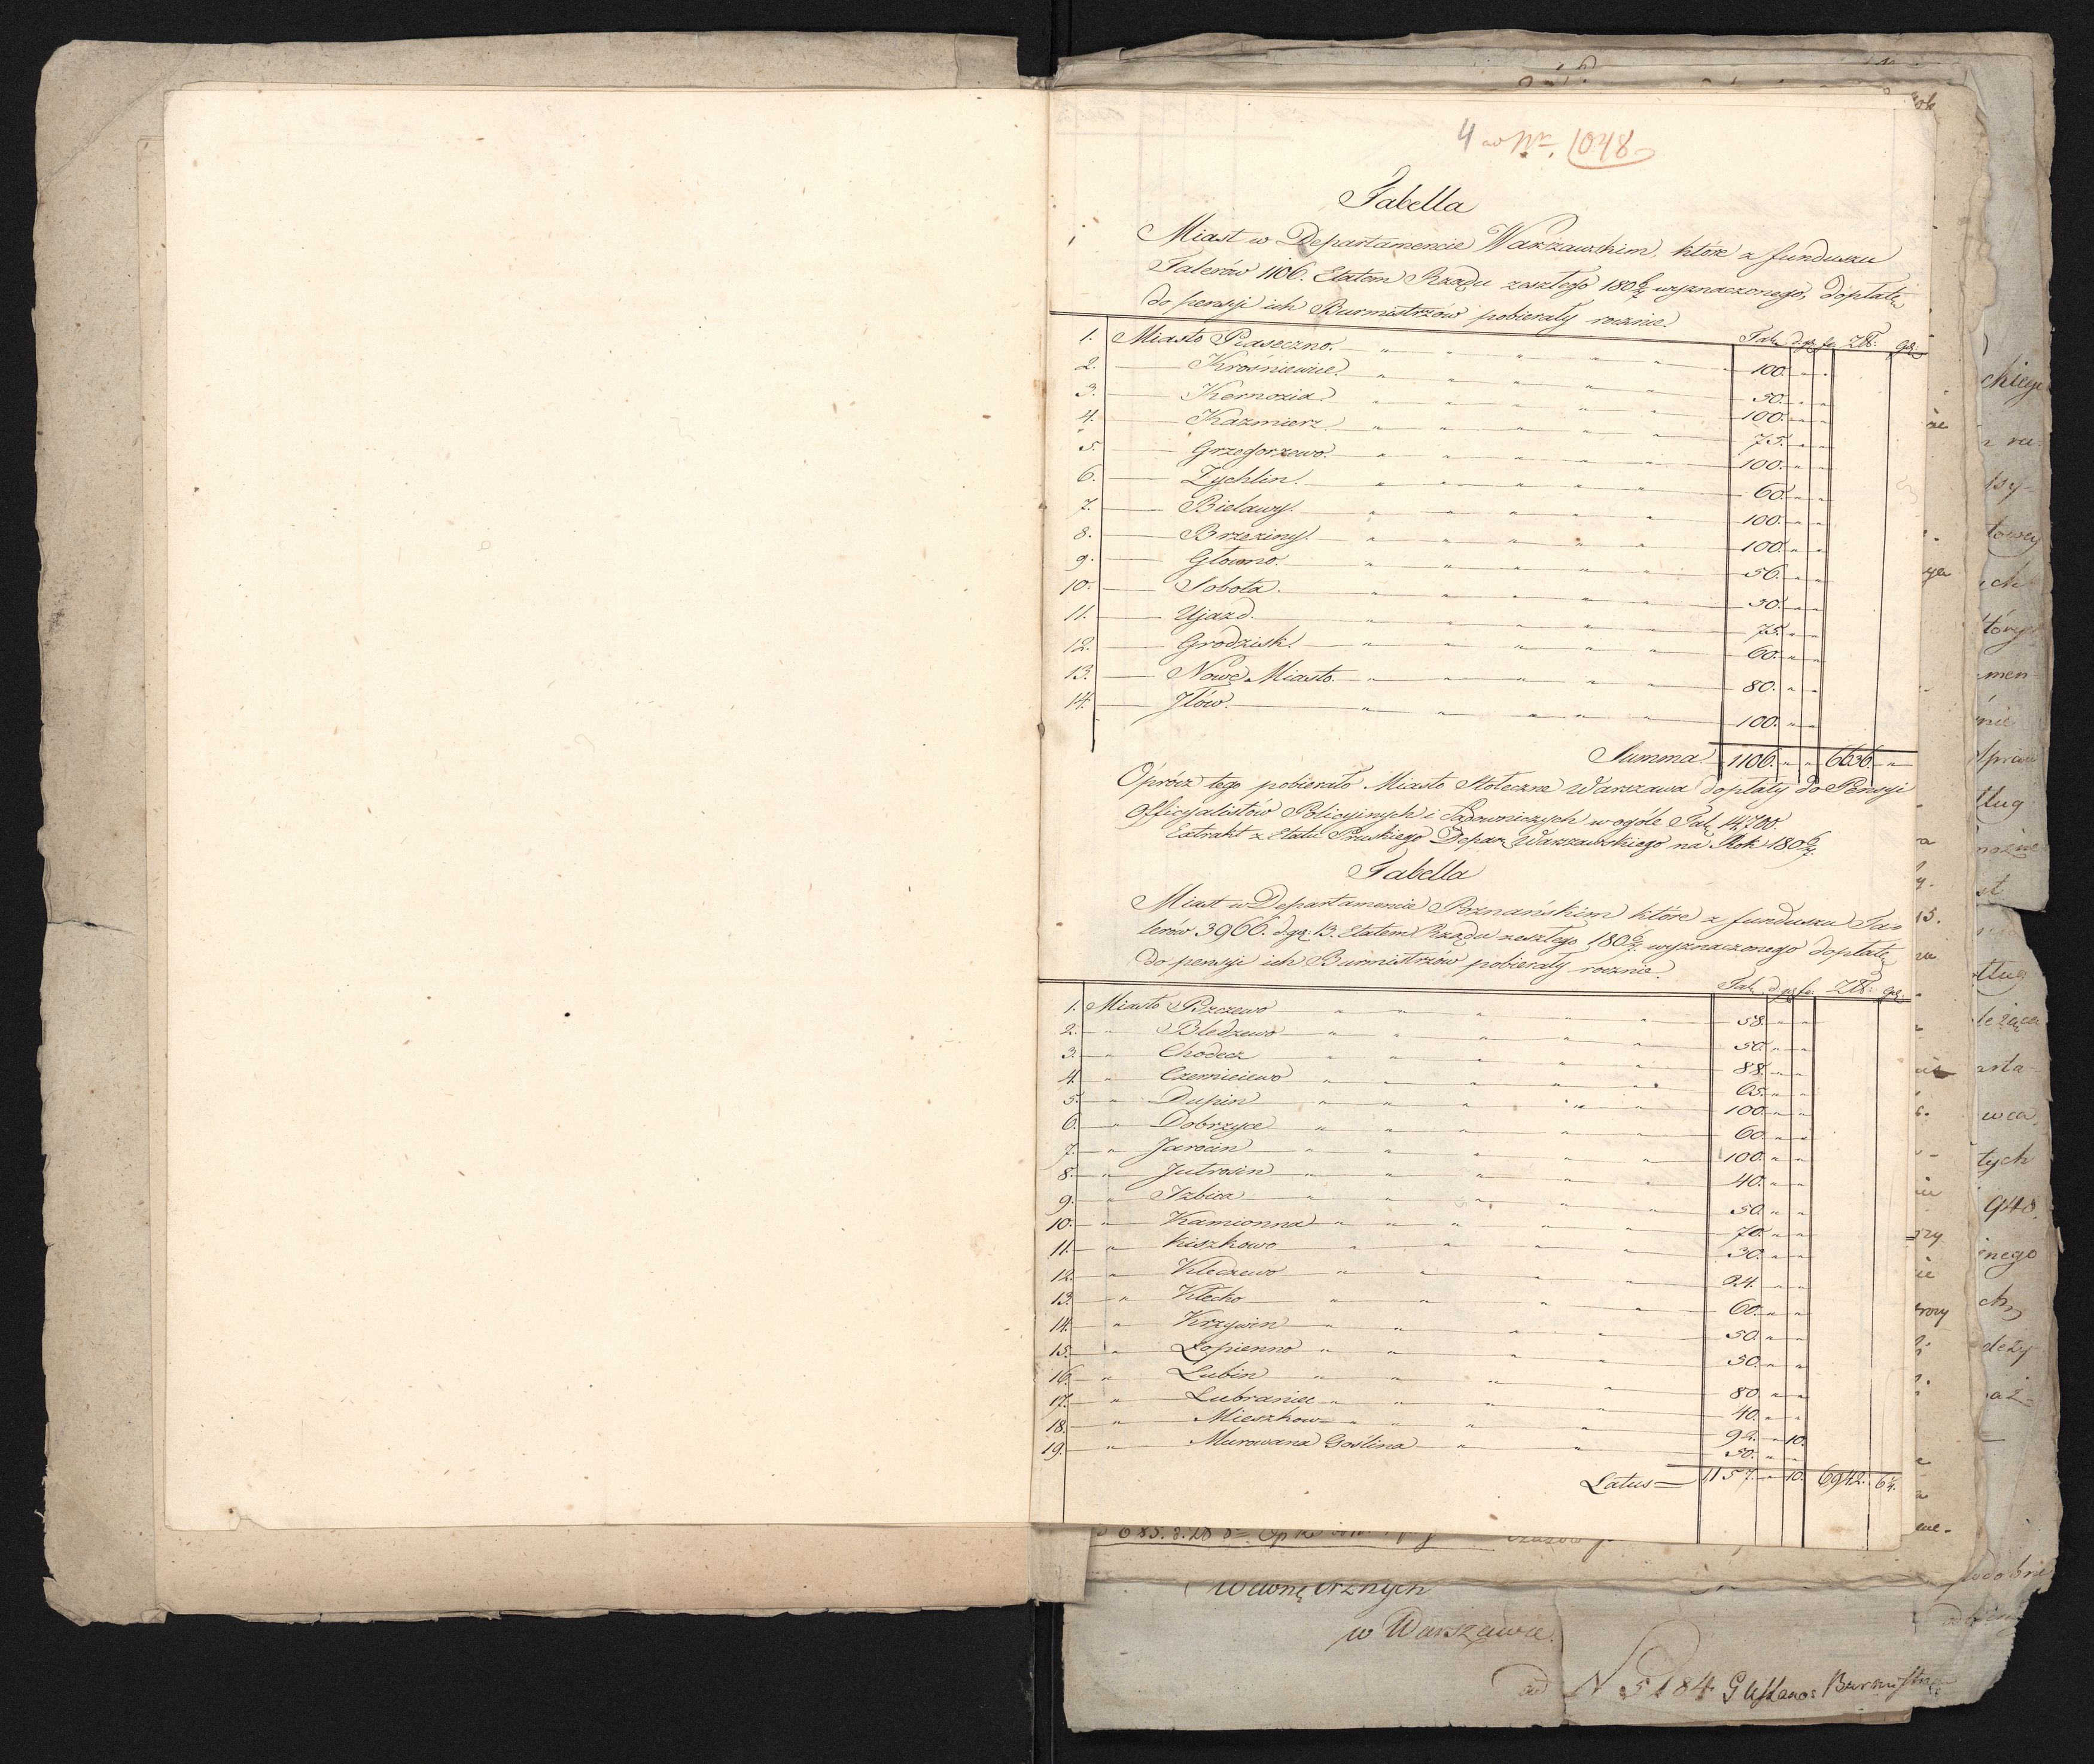 4 ad Nr. 1048
Tabella
Miast w Departamencie Warszawskim, które z funduszu
Talerów 1106. Etatem Rządu zeszłego 180 6/7 wyznaczonego, dopłatę
do pensyi ich Burmistrzów pobierały rocznie.
Tal. dgr. fe. Złł: gr:
1. Miasto Piaseczno. 100. " "
2. Krośniewice. 50. " "
3. Kiernozia. 100. " "
4. Kazmierz. 75. " "
5. Grzegorzewo. 100. " "
6. Zychlin. 60. " "
7. Bielawy. 100. " "
8. Brzeziny. 100. " "
9. Głowno. 56. " "
10. Sobota. 50. " "
11. Ujazd. 75. " "
12. Grodzisk. 60. " "
13. Nowe Miasto. 80. " "
14. Jłów. 100. " "
Summa 1106. " " 6636. "
Oprócz tego pobierało Miasto Stołeczne Warszawa dopłaty do Pensyi
Officjalistów Policyinych i Sądowniczych w ogóle Tal. 14,700.
Extrakt z Etatu Pruskiego Depar. Warszawskiego na Rok 180 6/7.
Tabella
Miast w Departamencie Poznańskim które z funduszu Ta-
lerów 3966. dgr: 13. Etatem Rządu zeszłego 180 6/7 wyznaczonego dopłatę
do pensyi ich Burmistrzów pobierały rocznie.
Tal. dgr fe: Złł: gr:
1. Miasto Pszczewo 58. " "
2. " Bledzewo 50. " "
3. " Chodecz 88. " "
4. " Czerniejewo 65. " "
5. " Dupin 100. " "
6. " Dobrzyce 60. " "
7. " Jarocin 100. " "
8. " Jutrosin 40. " "
9. " Izbica 50. " "
10. " Kamionna 70. " "
11. " Kiszkowo 30. " "
12. " Kleczewo 24. " "
13. " Klecko 60. " "
14. " Krzywin 50. " "
15. " Łopienno 50. " "
16. " Lubin 80. " "
17. " Lubraniec 40. " "
18. " Mieszkow 92. " 10.
19. " Murowana Goślina 50. " "
Latus = 1157. " 10. 6942. 6 1/4.
w Warszawie.
ad N 5184